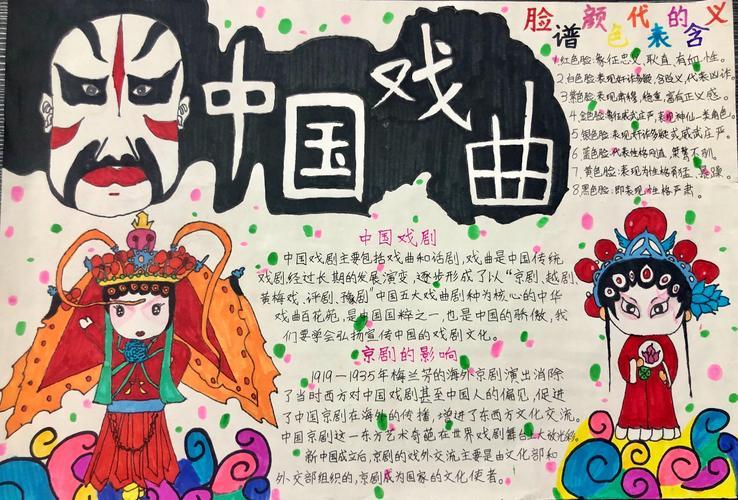 中国戏曲
脸谱颜色代表的含义
1.红色脸:象征忠义、耿直、有血性。
2.白色脸:表现奸诈多疑,含贬义,代表凶诈。
3 紫色脸:表现肃穆,稳重,富有正义感。
4 金色脸:象征威武庄严,表现神仙一类角色。
5 银色脸:表现奸诈多疑或威武庄严。
6 蓝色脸:代表性格刚直,桀骜不驯。
7.黄色脸:表现为性格 暴躁。
8 黑色脸:即表现性格严肃。
中国戏剧
中国戏剧主要包括戏曲和话剧,戏曲是中国传统
戏剧经过长期的发展演变,逐步形成了以“京剧、越剧、
黄梅戏、评剧、豫剧”中国五大戏曲剧种为核心的中华
戏曲百花苑,是中国国粹之一,也是中国的骄傲,我
们要学会弘扬宣传中国的戏剧文化。
京剧的影响
1919—1935年梅兰芳的海外京剧演出消除
了当时西方对中国戏剧甚至中国人的偏见,促进
了中国京剧在海外的传播,增进了东西方文化交流。
中国京剧这一东方艺术奇葩在世界戏剧舞台上大放光彩。
新中国成立后,京剧的对外交流主要是由文化部和
外交部组织的,京剧成为国家的文化使者。